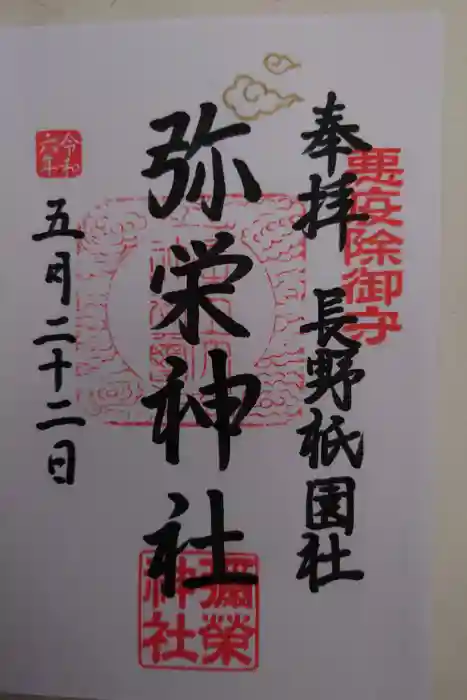 奉拝 長野祇園社
悪疫除御守
弥栄神社
彌榮神社
令和六年
五月二十二日